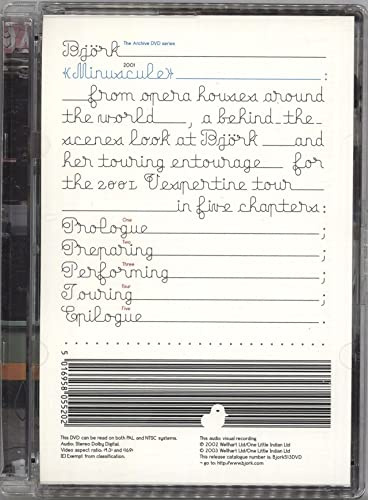 Björk The Archive DVD series
«Minuscule» 2001 :
from opera houses around
the world , a behind-the-
scenes look at Björk and
her touring entourage for
the 2001 Vespertine tour
in five chapters:
Prologue One ;
Preparing Two ;
Performing Three ;
Touring Four ;
Epilogue Five .
5016958055202
This DVD can be read on both PAL and NTSC systems.
Audio: Stereo Dolby Digital.
(E) Exempt from classification.
This audio visual recording
℗ 2002 Wellhart Ltd/One Little Indian Ltd
© 2003 Wellhart Ltd/One Little Indian Ltd
This release catalogue number is: Bjork513DVD
~ go to: http://www.bjork.com